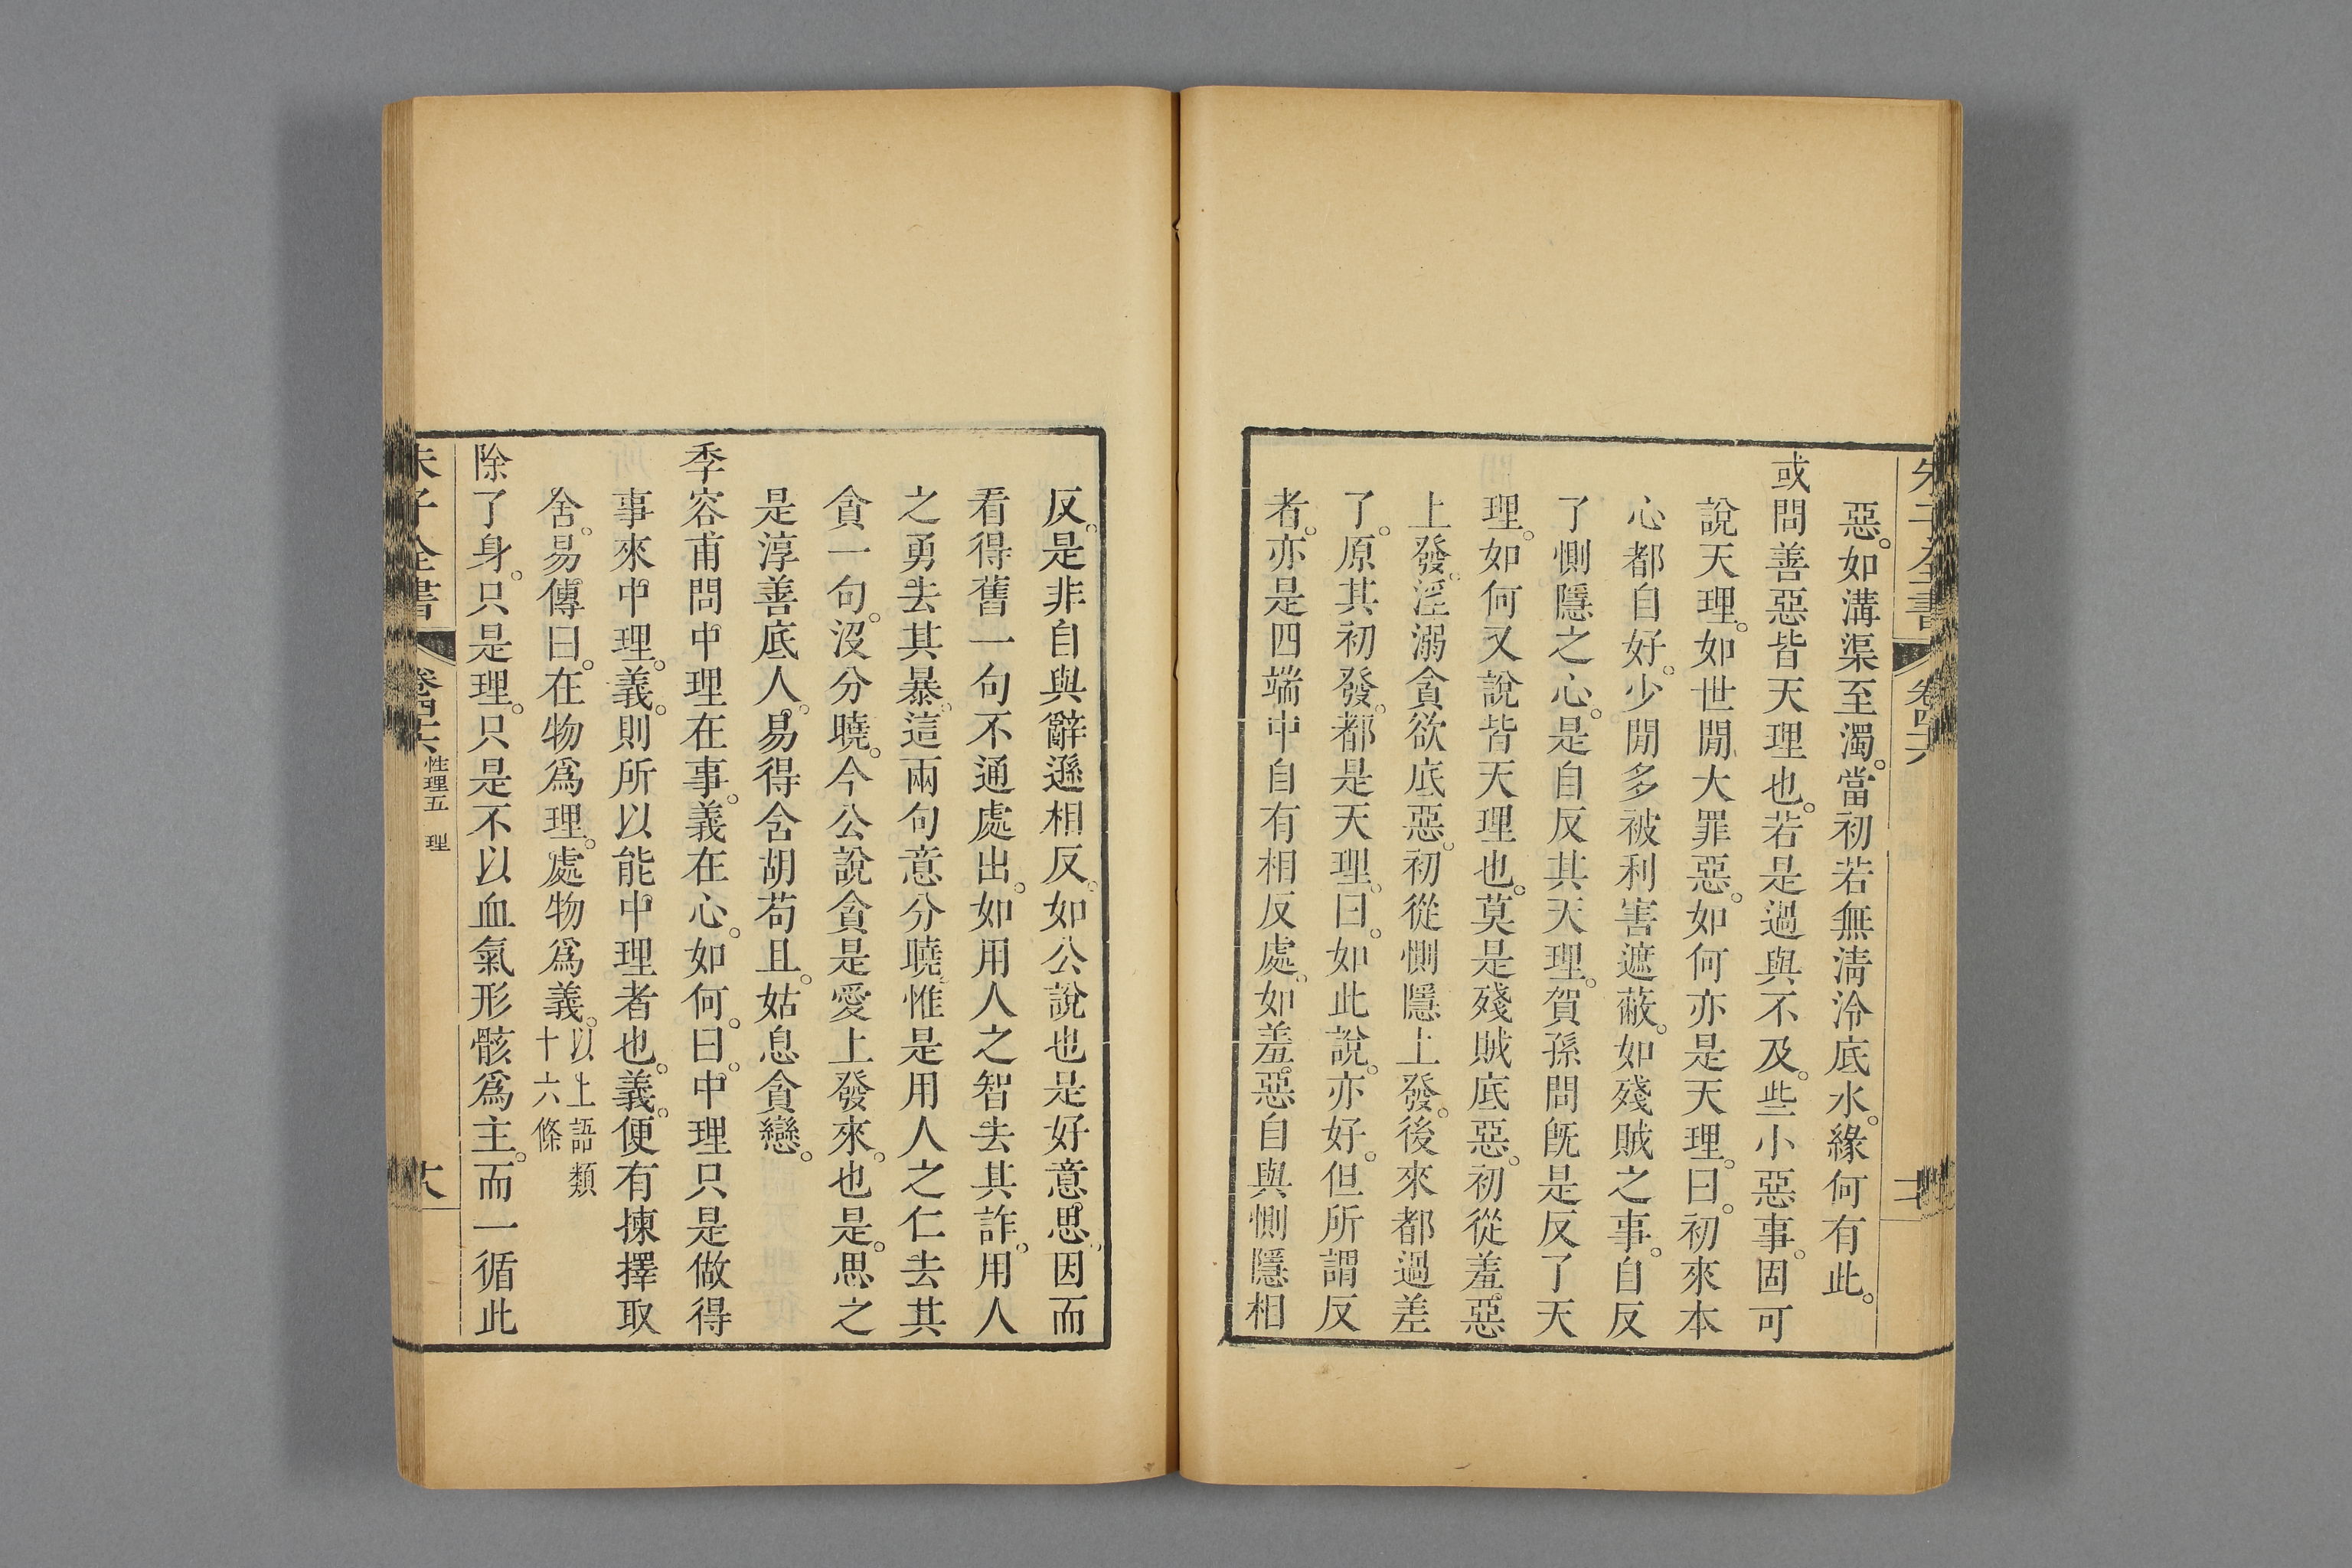 惡。如溝渠至濁。當初若無淸泠底水。緣何有此。
或問善惡皆天理也。若是過與不及。些小惡事。固可
說天理。如世閒大罪惡。如何亦是天理。曰。初來本
心都自好。少閒多被利害遮蔽。如殘賊之事。自反
了惻隱之心。是自反其天理。賀孫問旣是反了天
理。如何又說皆天理也。莫是殘賊底惡。初從羞惡
上發。淫溺貪欲底惡。初從惻隱上發。後來都過差
了。原其初發。都是天理。曰。如此說。亦好。但所謂反
者。亦是四端中自有相反處。如羞惡自與惻隱相
反。是非自與辭遜相反。如公說也是好意思。因而
看得舊一句不通處出。如用人之智去其詐。用人
之勇去其暴。這兩句意分曉。惟是用人之仁去其
貪一句。沒分曉。今公說貪是愛上發來。也是。思之
是淳善底人。易得含胡苟且。姑息貪戀。
季容甫問中理在事。義在心。如何。曰。中理只是做得
事來中理。義。則所以能中理者也。義。便有揀擇取
舍。易傳曰。在物爲理。處物爲義。以上語類
十六條
除了身。只是理。只是不以血氣形骸爲主。而一循此
朱子全書 卷四十六 性理五 理